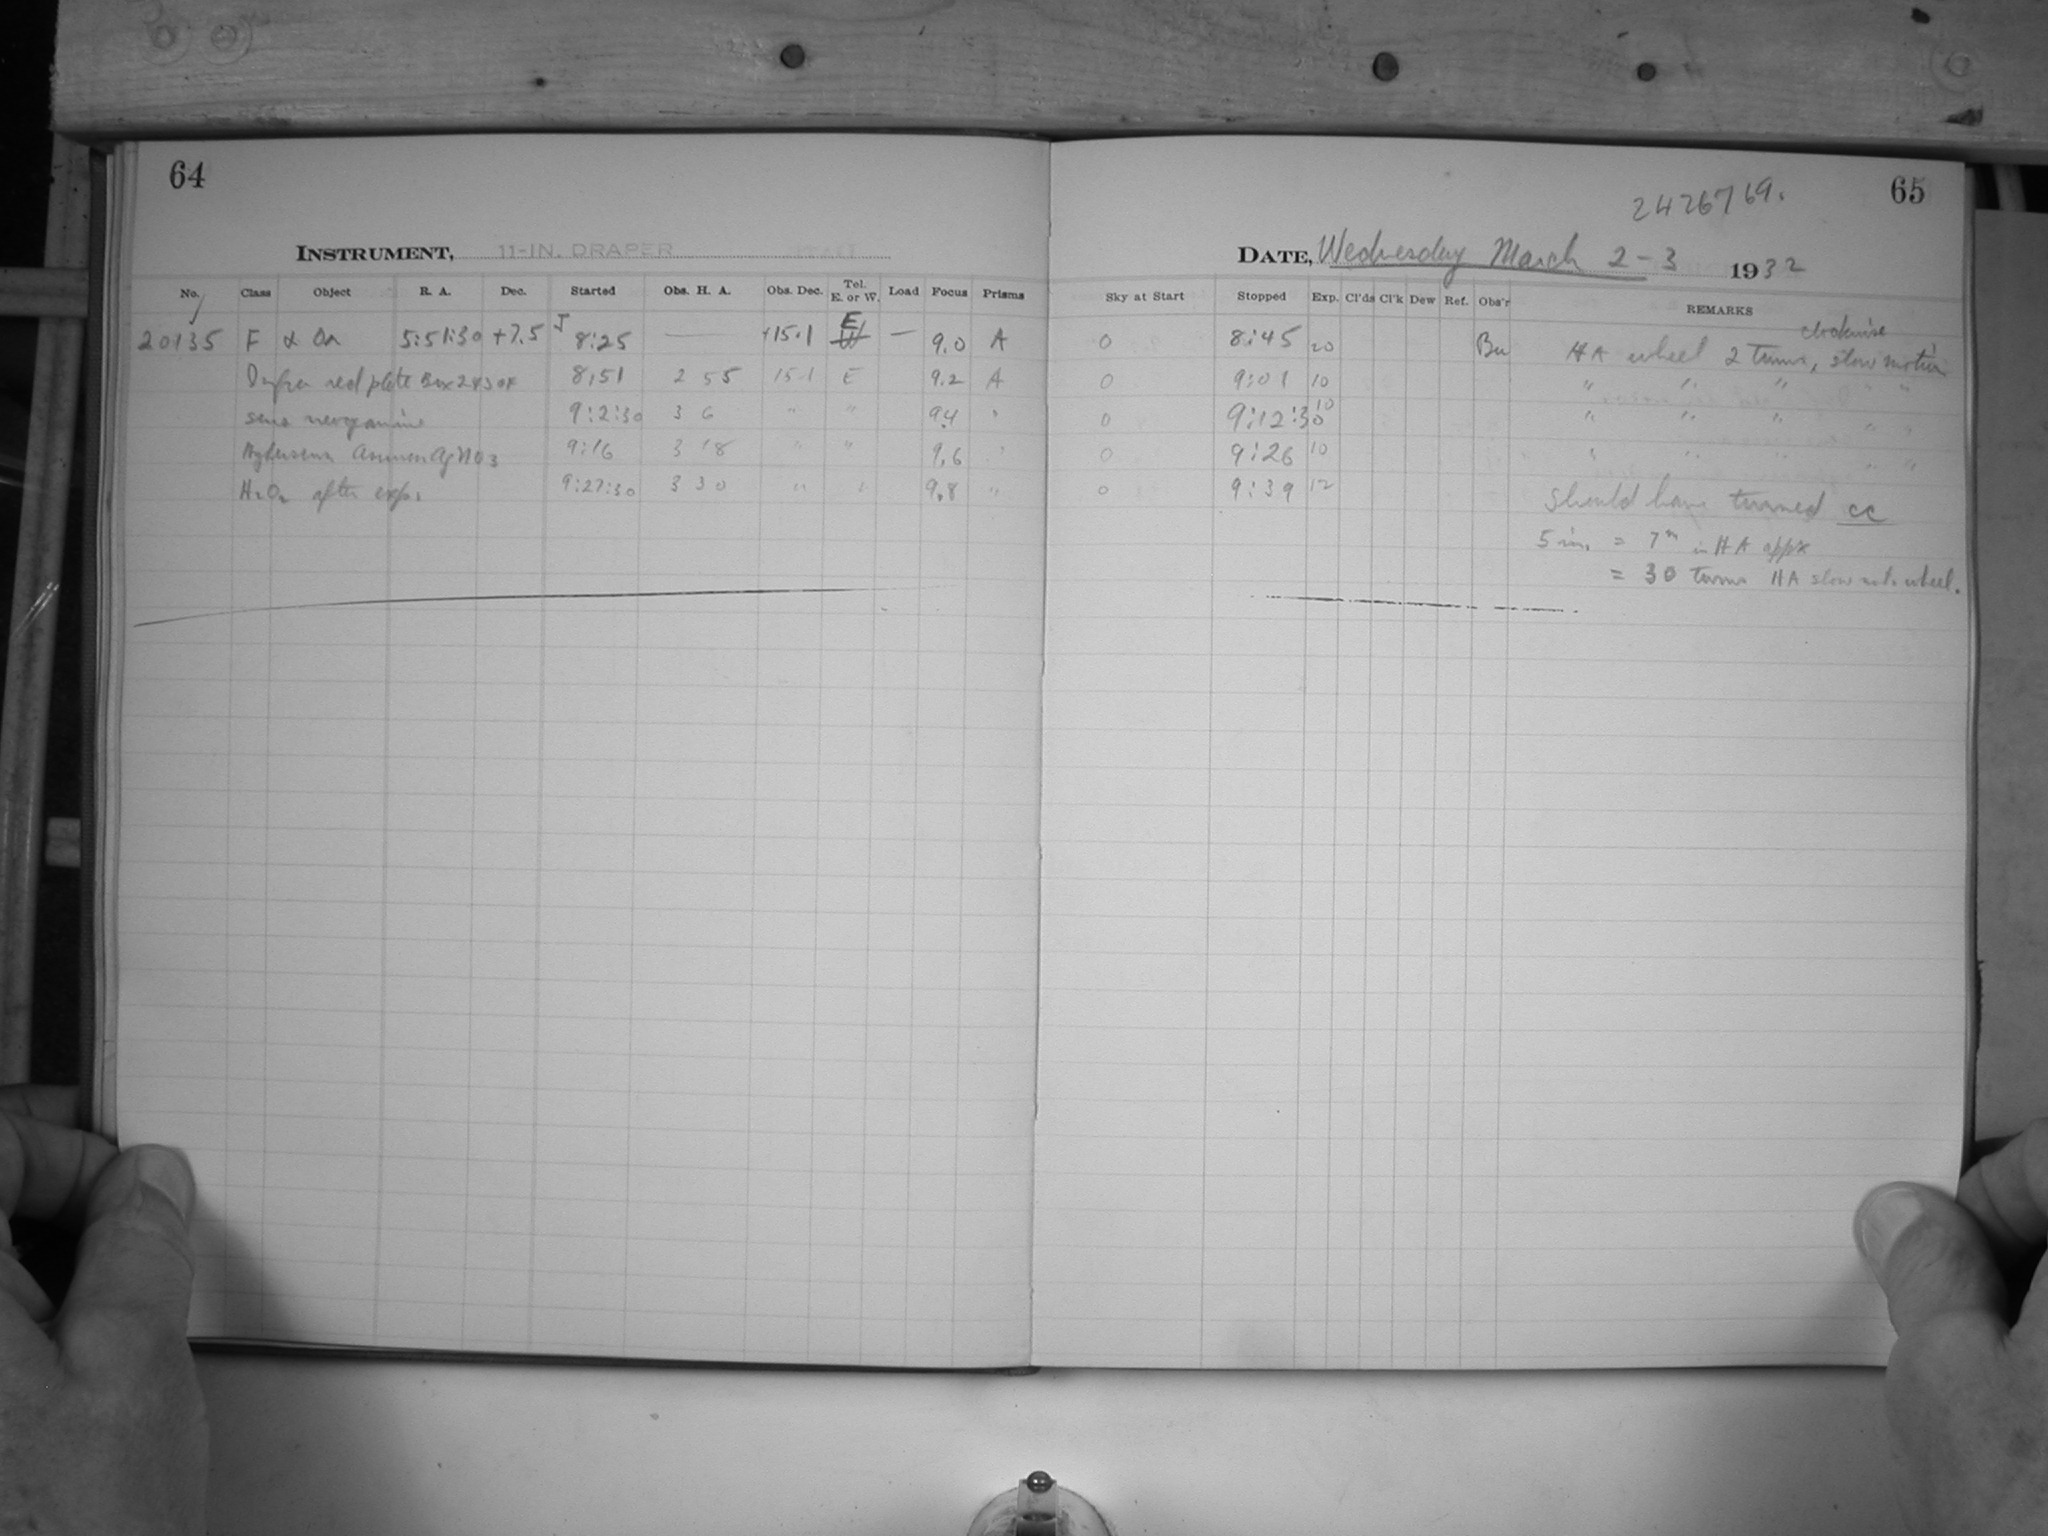 64
INSTRUMENT, 11-IN. DRAPER
No. Class Object R. A. Dec. Started Obs. H. A. Obs. Dec. Tel. E. or W. Load Focus Prisms
20135 F α Ori 5:51:30 +7.5 J 8:25 — +15.1 E W — 9.0 A
Infra red plate Box 8:51 2 55 15.1 E 9.2 A
sens neocyanine 9:2:30 3 6 " " 9.4 "
Hypersens Ammon AgNO3 9:16 3 18 " " 9.6 "
H2O2 after exp. 9:27:30 3 30 " " 9.8 "
65
2426769.
DATE, Wednesday March 2-3 1932
Sky at Start Stopped Exp. Cl'ds Cl'k Dew Ref. Obs'r REMARKS
0 8:45 20 Bu HA wheel 2 turns, clockwise slow motion
0 9:01 10 " " " " "
0 9:12:30 10 " " " " "
0 9:26 10 " " " " "
0 9:39 12 Should have turned cc
5 in. = 7m in HA appx
= 30 turns HA slow mot. wheel.